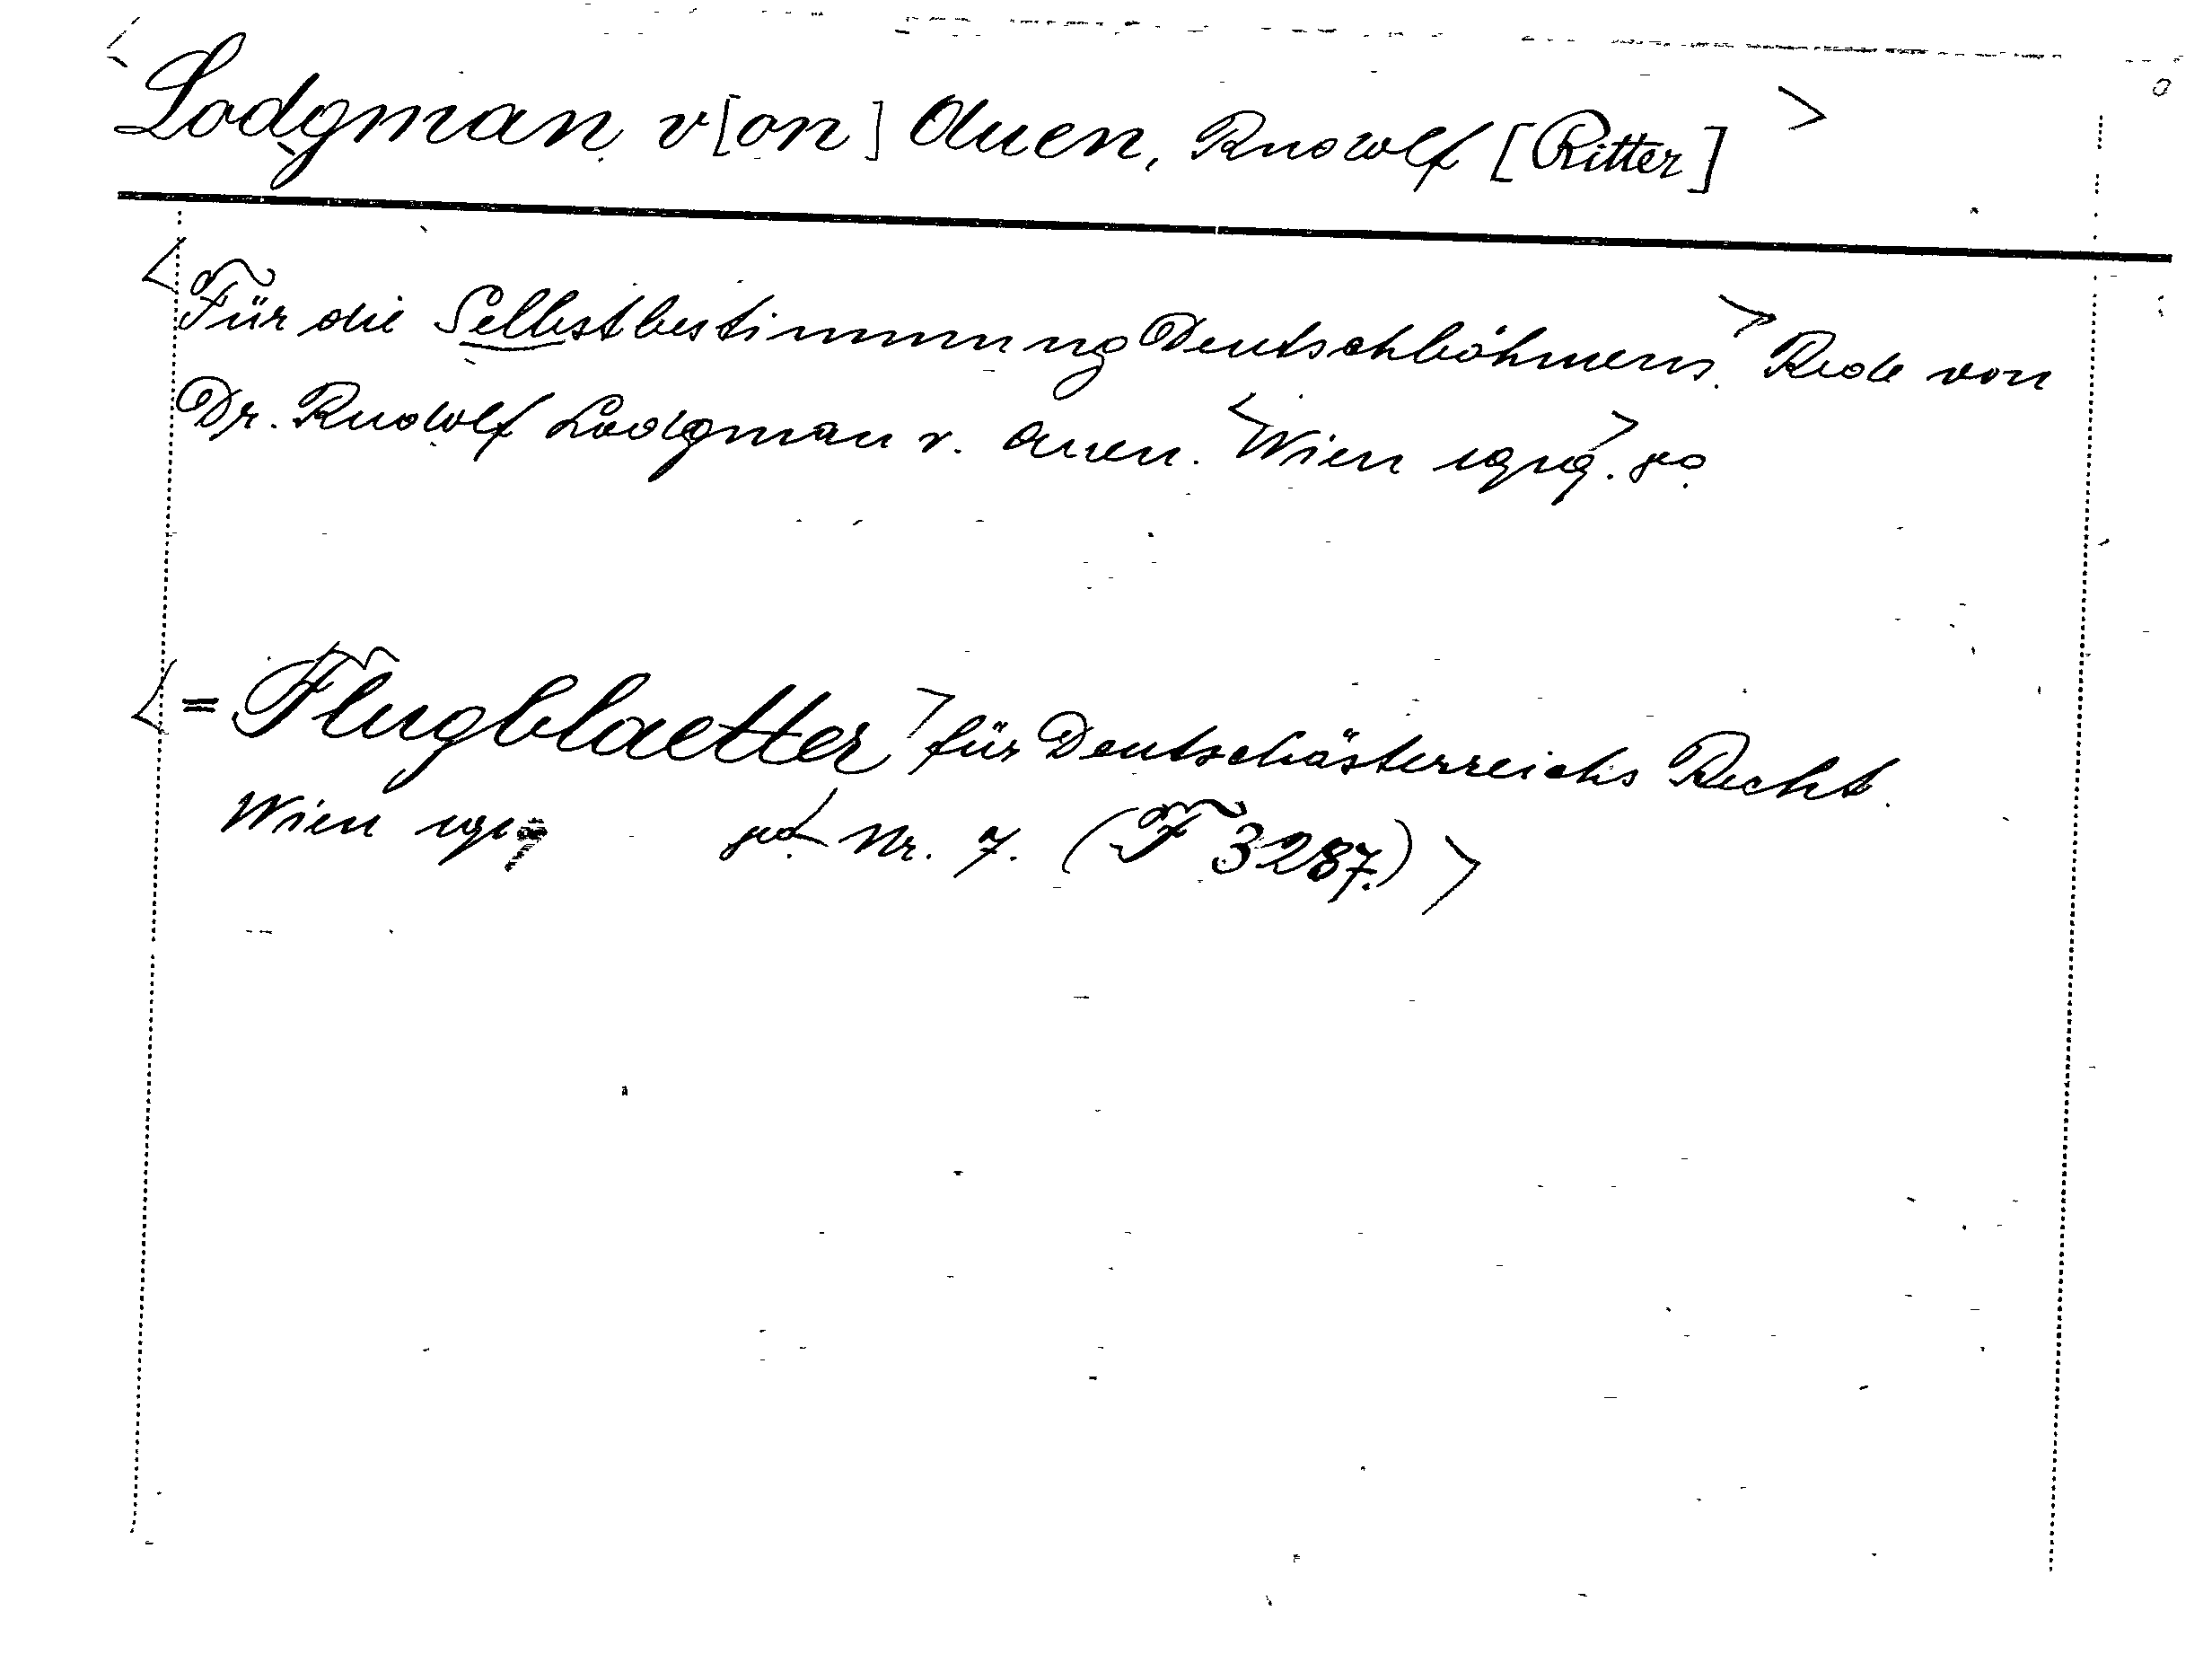 <Lodgman v[on] Auen, Rudolf [Ritter]>
<Für die Selbstbestimmung Deutschböhmens.> Rede von
Dr. Rudolf Lodgman v. Auen. <Wien 1919.> 8°.
<=Flugblaetter> für Deutschösterreichs Recht.
Wien 191 8°. <Nr. 7. (F 3287.)>